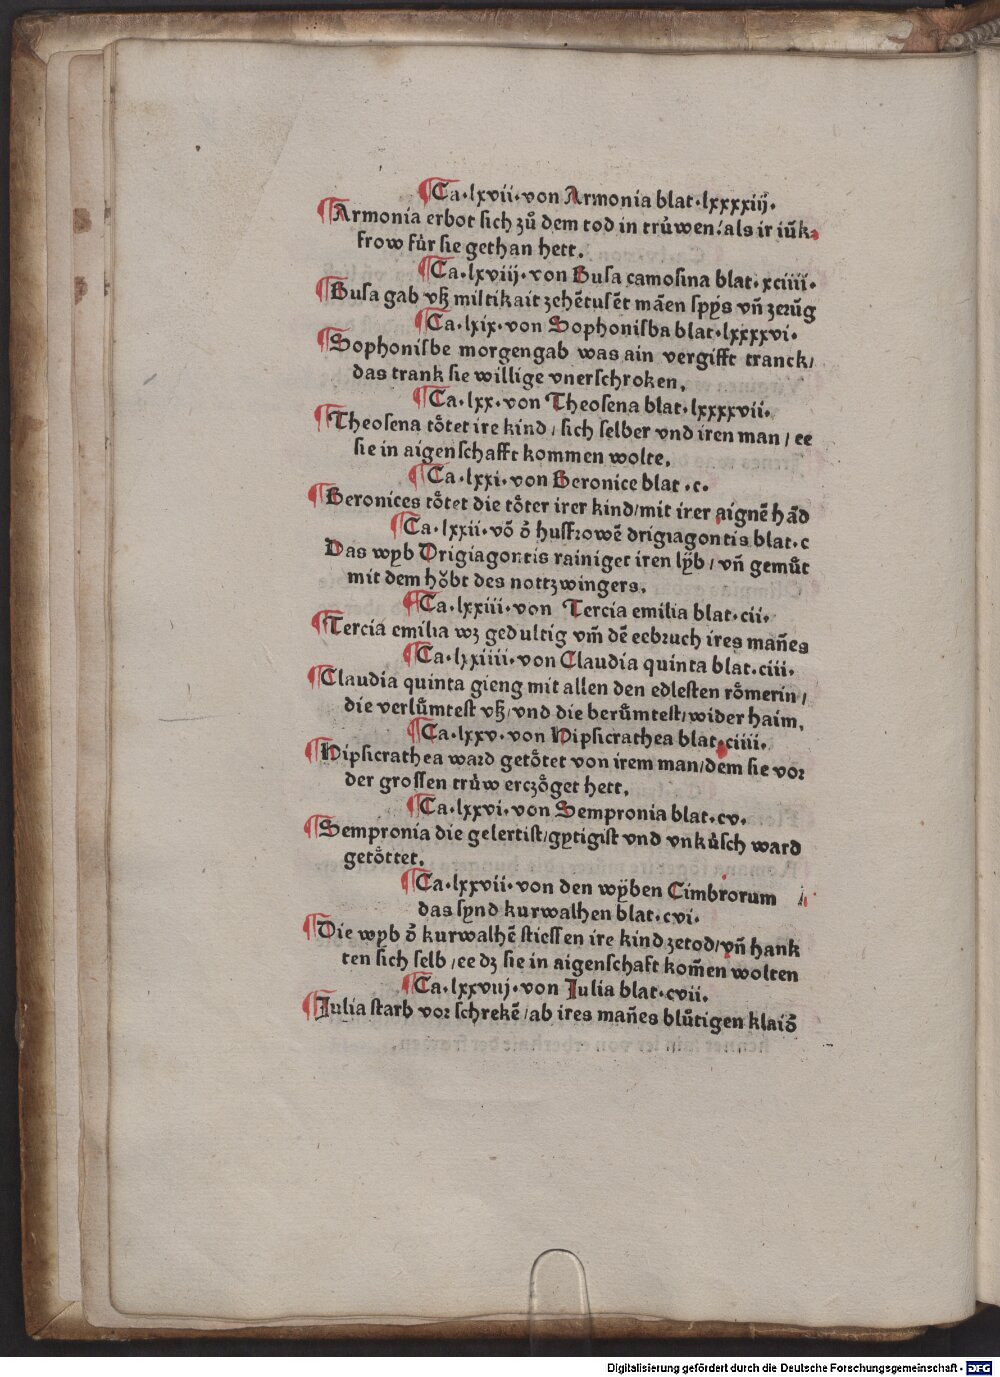 ¶Ca·lxvii·von Armonia blat·lxxxxiij·
¶Armonia erbot sich zů dem tod in trüwen/als ir iůk⸗
frow für sie gethan hett.
¶Ca·lxviij·von Busa camosina blat·xciiii·
¶Busa gab vß miltikait zehẽtusẽt mãen spÿs vñ zerũg
¶Ca·lxix·von Sophonisba blat·lxxxxvi·
¶Sophonisbe morgengab was ain vergifft tranck/
das trank sie willige vnerschroken.
¶Ca·lxx·von Theosena blat·lxxxxvii·
¶Theosena tötet ire kind/sich selber vnd iren man/ee
sie in aigenschafft kommen wolte.
¶Ca·lxxi·von Beronice blat·c·
¶Beronices tötet die töter irer kind/mit irer aignẽ hãd
¶Ca·lxxii·võ ð husfrowẽ drigiagontis blat·c
Das wyb Drigiagontis rainiget iren lÿb/vñ gemůt
mit dem höbt des nottzwingers.
¶Ca·lxxiii·von Tercia emilia blat·cii·
¶Tercia emilia wz gedultig vm̃ dẽ eebruch ires mañes
¶Ca·lxxiiii·von Claudia quinta blat·ciii·
¶Claudia quinta gieng mit allen den edlesten römerin/
die verlümtest vß/vnd die berümtest/wider haim.
¶Ca·lxxv·von Hipsicrathea blat·ciiii·
¶Hipsicrathea ward getötet von irem man/dem sie vor
der grossen trüw erczöget hett.
¶Ca·lxxvi·von Sempronia blat·cv·
¶Sempronia die gelertist/gytigist vnd vnküsch ward
getöttet.
¶Ca·lxxvii·von den wÿben Cimbrorum
das synd kurwalhen blat·cvi·
¶Die wyb ð kurwalhẽ stiessen ire kind zetod/vñ hank
ten sich selb/ee dz sie in aigenschaft kom̃en wolten
¶Ca·lxxviij·von Julia blat·cvii·
¶Julia starb vor schrekẽ/ab ires mañes blůtigen klaið
Digitalisierung gefördert durch die Deutsche Forschungsgemeinschaft - DFG